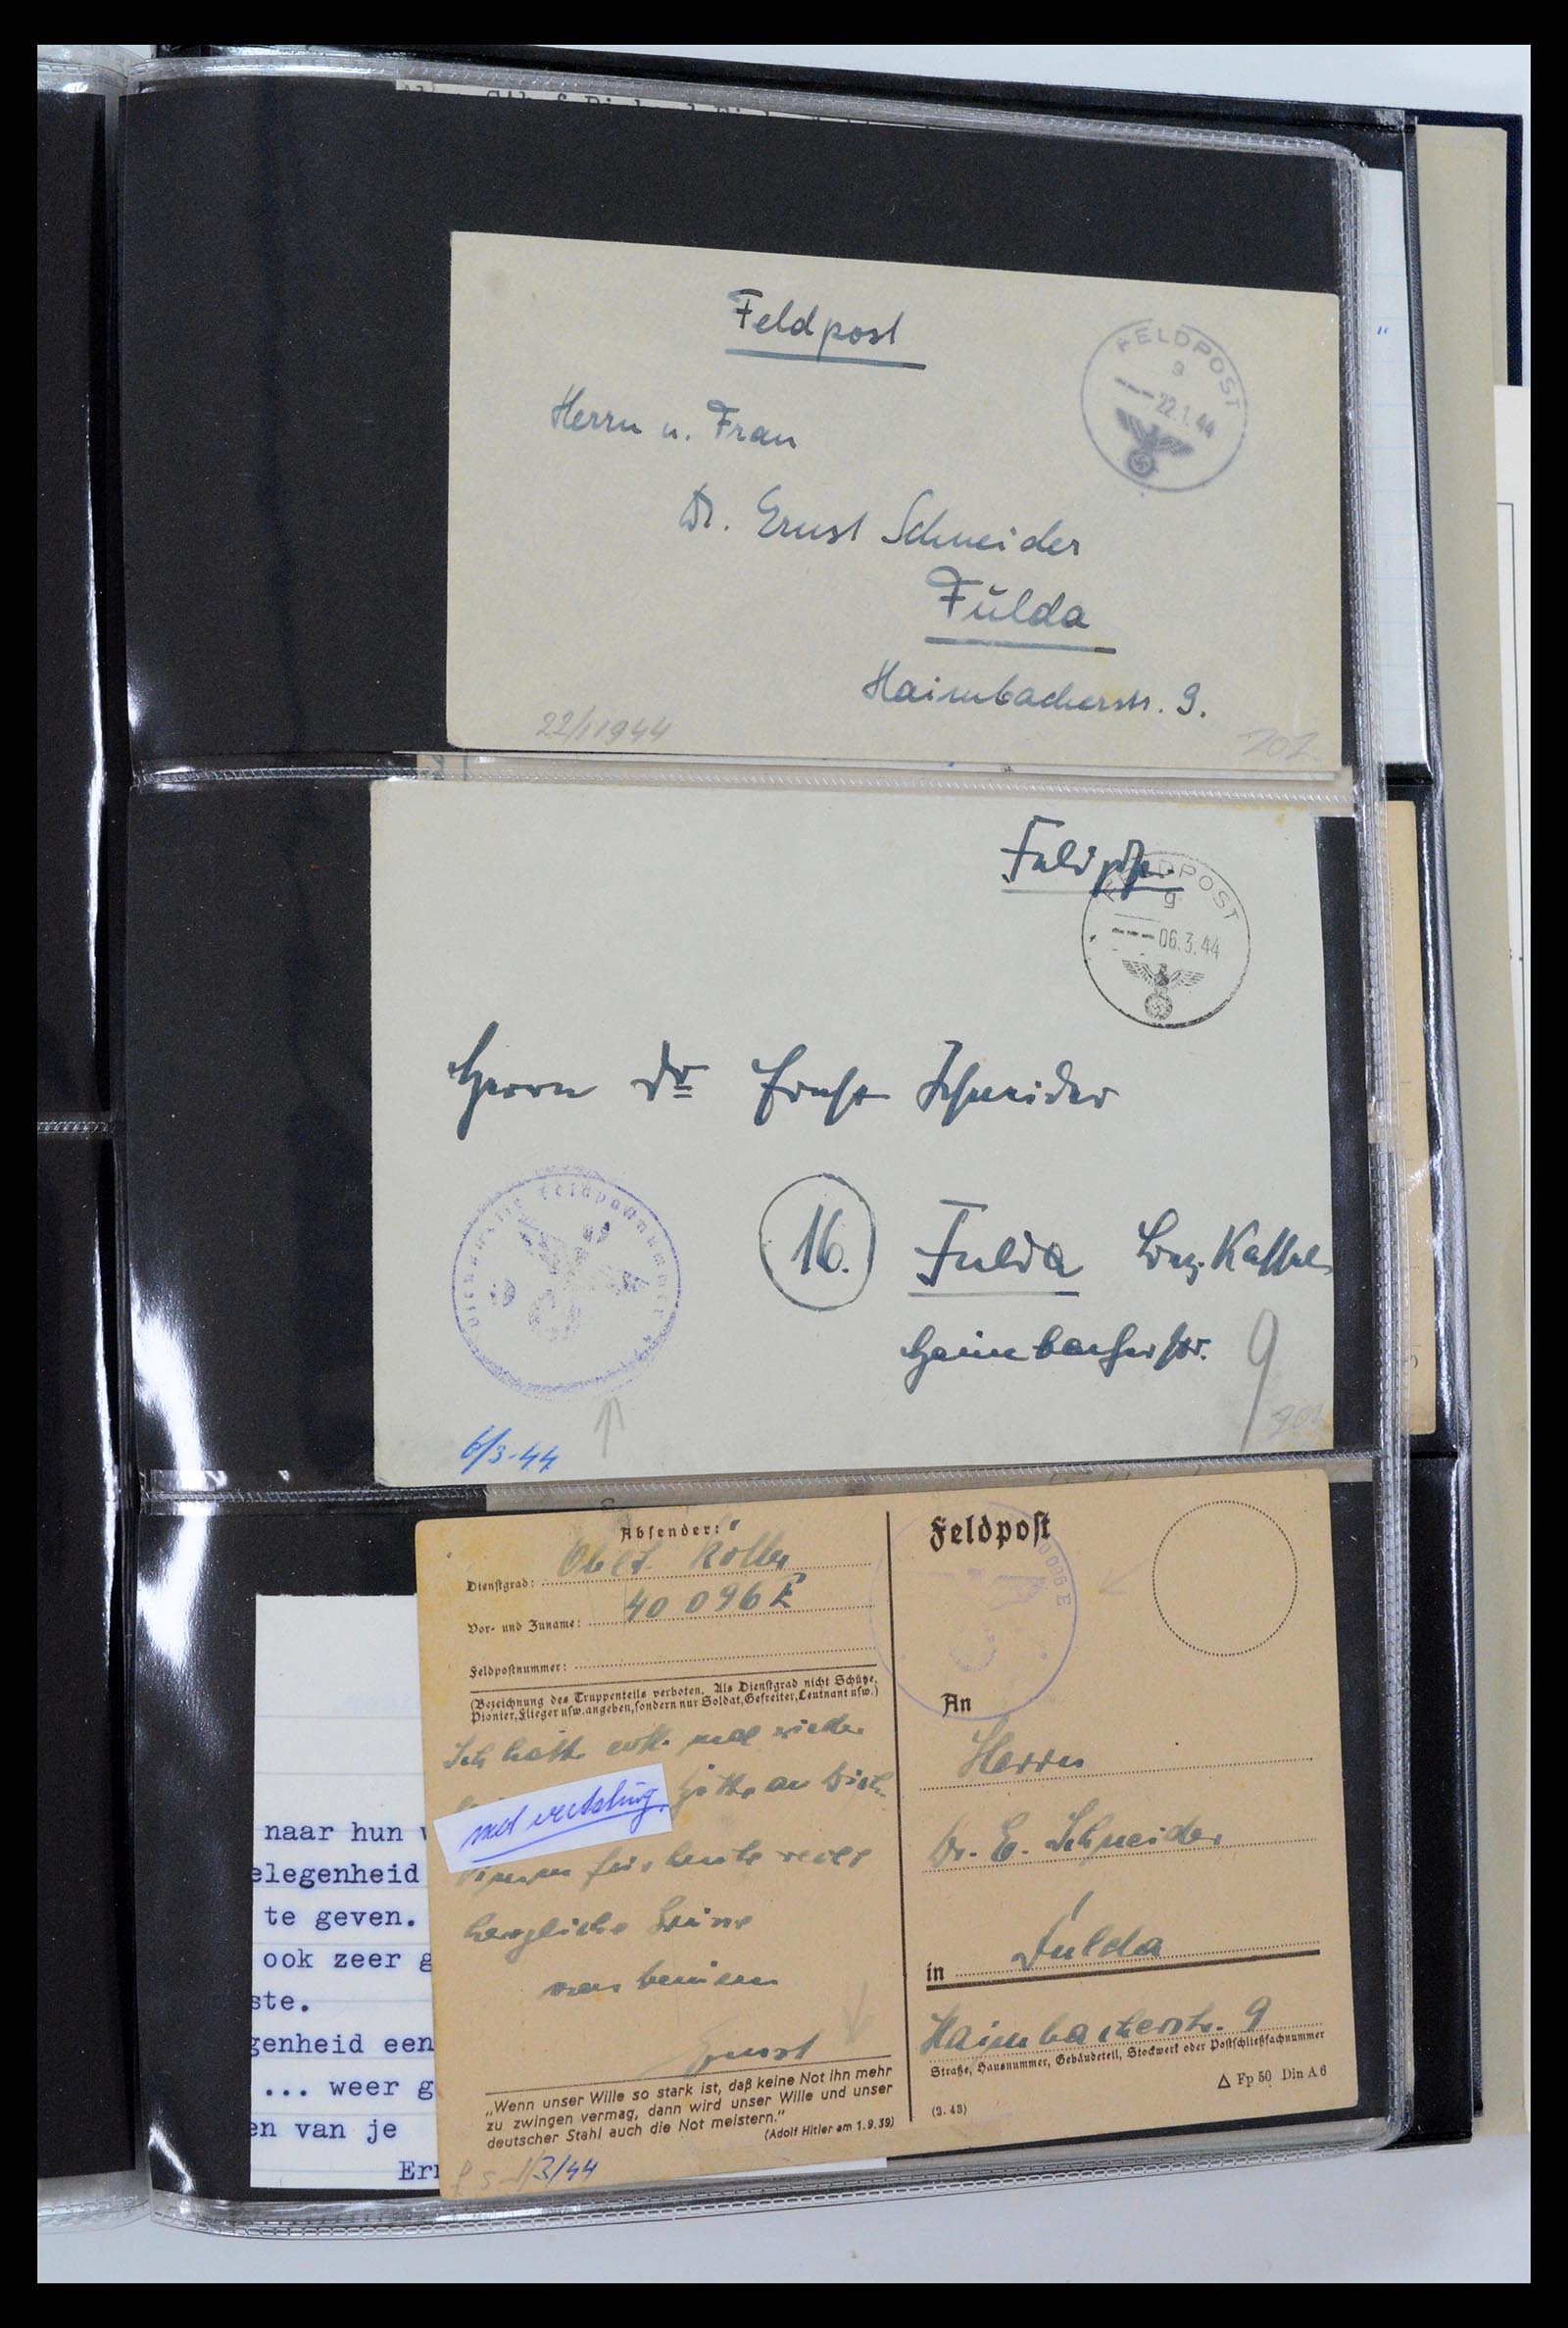 Feldpost
FELDPOST
g
22.1.44
Herrn u. Frau
Dr. Ernst Schneider
Fulda
Haimbacherstr. 9.
22/1 1944
202
Feldpost
FELDPOST
g
06.3.44
Herrn Dr Ernst Schneider
Dienststelle Feldpostnummer
16. Fulda Bez. Kassel
Haimbacherstr. 9
6/3-44
Absender:
Dienstgrad: Oblt. Köller
Vor- und Zuname: 40 096 E
Feldpostnummer:
(Bezeichnung des Truppenteils verboten. Als Dienstgrad nicht Schütze,
Pionier, Flieger usw. angeben, sondern nur Soldat, Gefreiter, Leutnant usw.)
Ich hätte evtl. mal wieder
Bitte an Dich.
met vertaling
für heute recht
herzliche Grüsse
von Deinem
Ernst
„Wenn unser Wille so stark ist, daß keine Not ihn mehr
zu zwingen vermag, dann wird unser Wille und unser
deutscher Stahl auch die Not meistern.“
(Adolf Hitler am 1.9.39)
1/3/44
Feldpost
An
Herrn
Dr. E. Schneider
in Fulda
Haimbacherstr. 9
Straße, Hausnummer, Gebäudeteil, Stockwerk oder Postschließfachnummer
△ Fp 50 Din A 6
(3. 43)
naar hun
elegenheid
te geven.
ook zeer g
ste.
genheid een
... weer g
en van je
Er